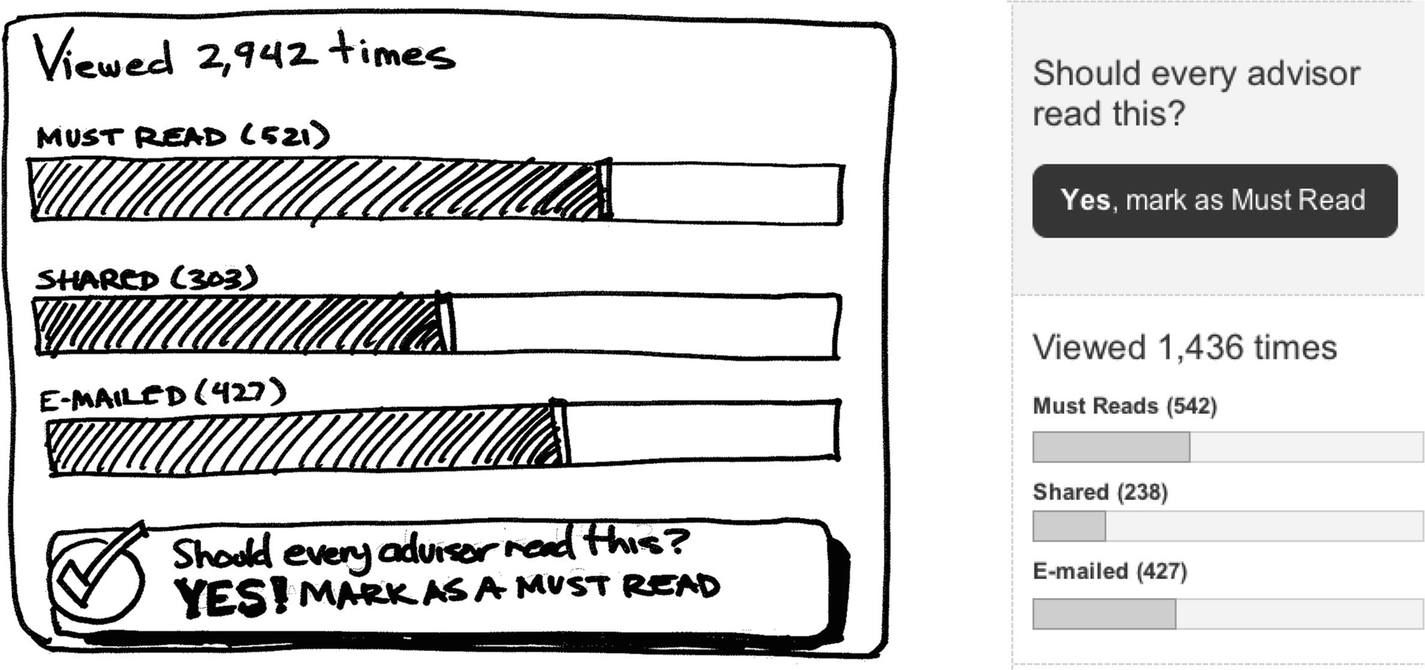 Viewed 2,942 times
MUST READ (521)
SHARED (303)
E-MAILED (427)
Should every advisor read this?
YES! MARK AS A MUST READ
Should every advisor
read this?
Yes, mark as Must Read
Viewed 1,436 times
Must Reads (542)
Shared (238)
E-mailed (427)